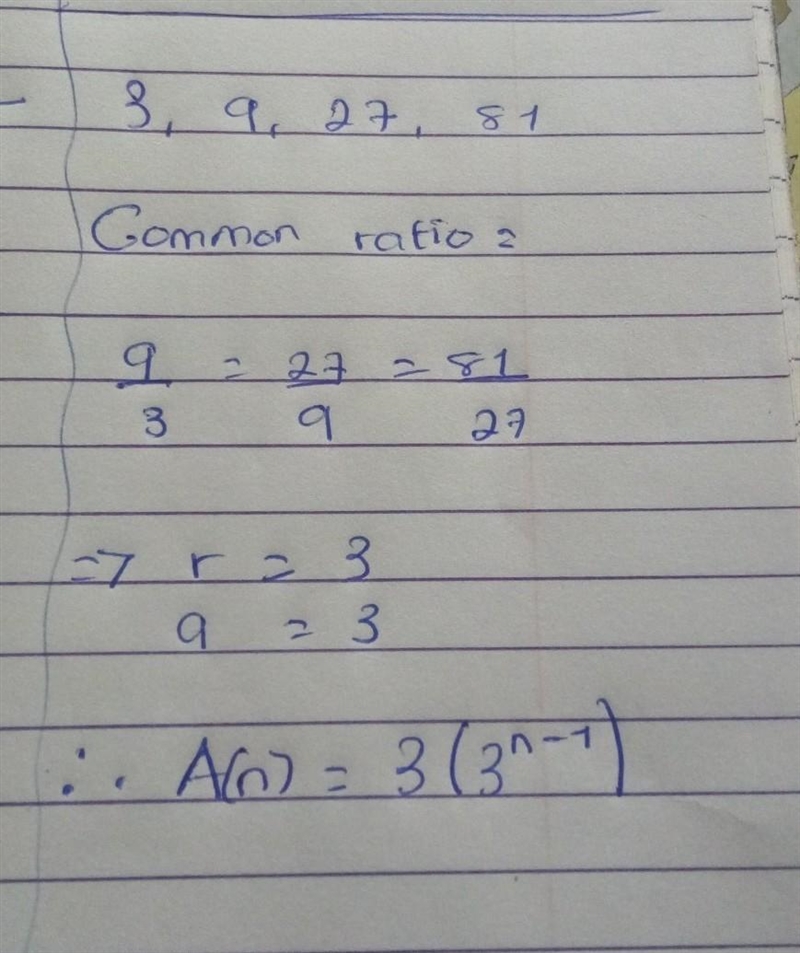 3, 9, 27, 81
Common ratio =
9/3 = 27/9 = 81/27
=> r = 3
a = 3
∴ A(n) = 3(3^{n-1})